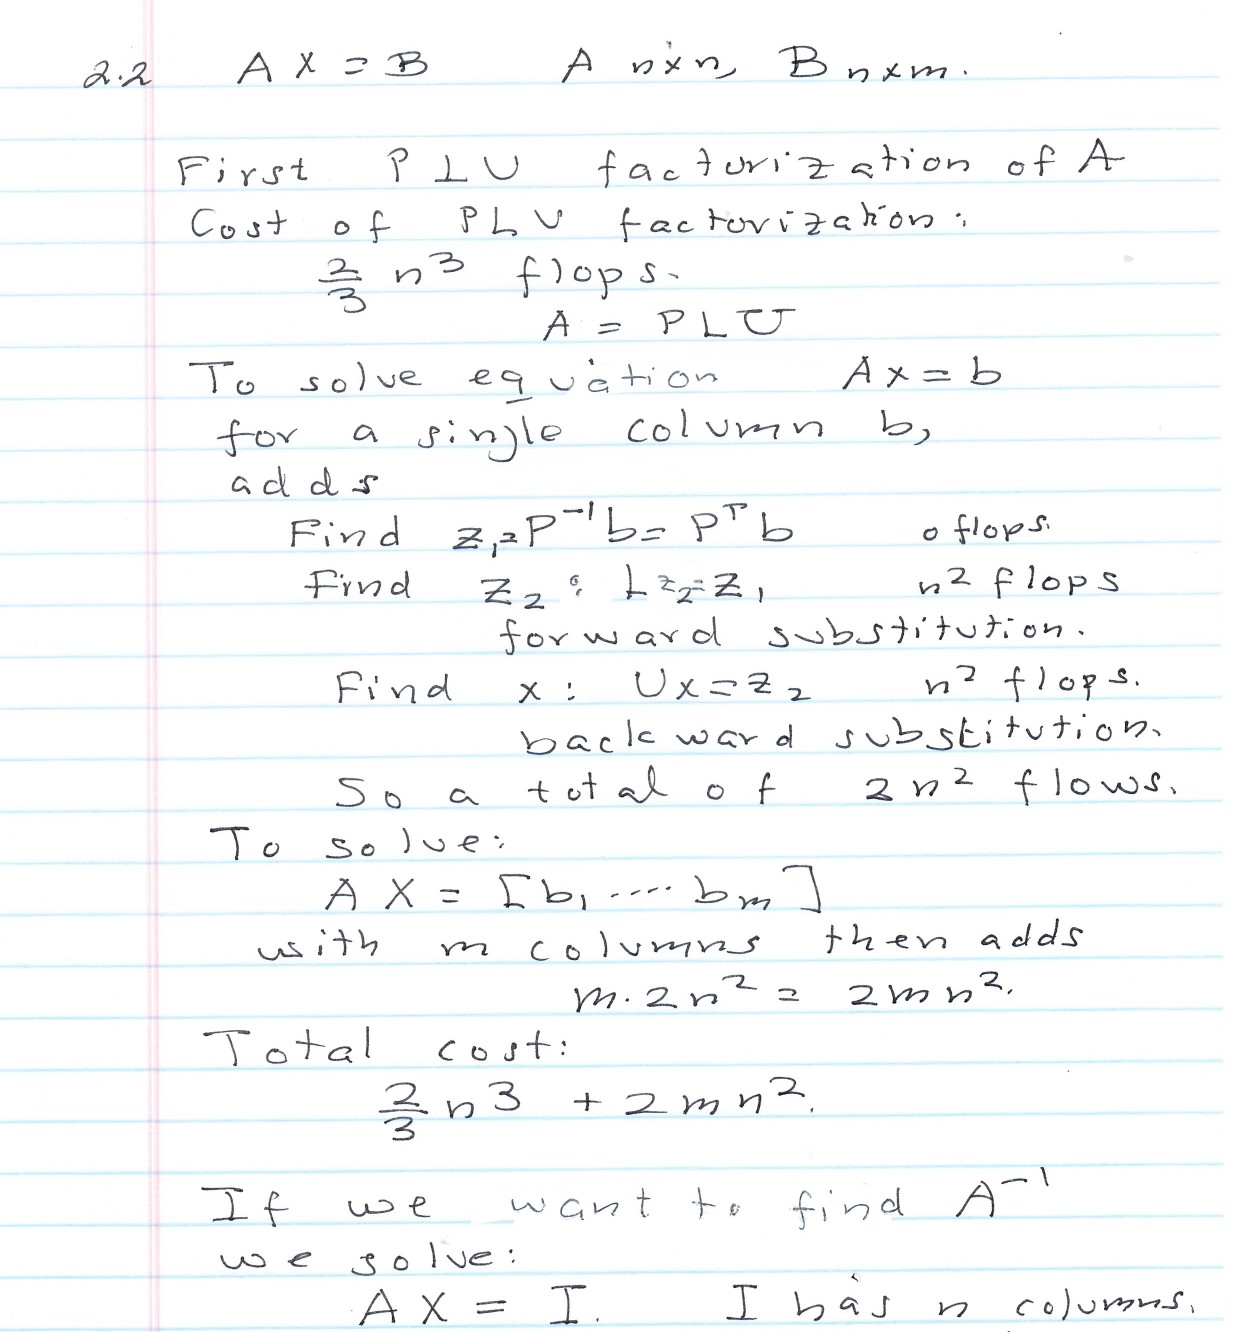 2.2 A X = B A n×n, B n×m.
First PLU factorization of A
Cost of PLU factorization:
2/3 n³ flops.
A = PLU
To solve equation Ax = b
for a single column b,
adds
Find z₁ = P⁻¹b = Pᵀb 0 flops.
Find z₂ : Lz₂ = z₁ n² flops
forward substitution.
Find x : Ux = z₂ n² flops.
backward substitution.
So a total of 2n² flows.
To solve:
A X = [b₁ ---- bₘ]
with m columns then adds
m·2n² = 2mn².
Total cost:
2/3 n³ + 2mn².
If we want to find A⁻¹
we solve:
A X = I. I has n columns.